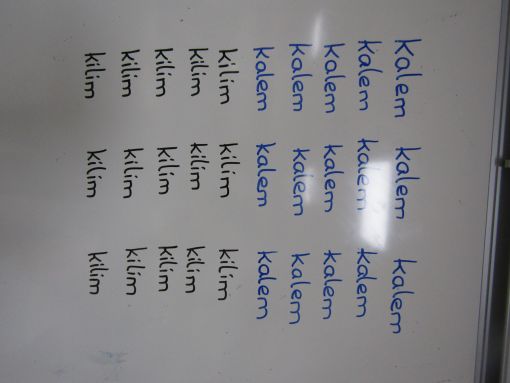 kalem kalem kalem
kalem kalem kalem
kalem kalem kalem
kalem kalem kalem
kalem kalem kalem
kilim kilim kilim
kilim kilim kilim
kilim kilim kilim
kilim kilim kilim
kilim kilim kilim